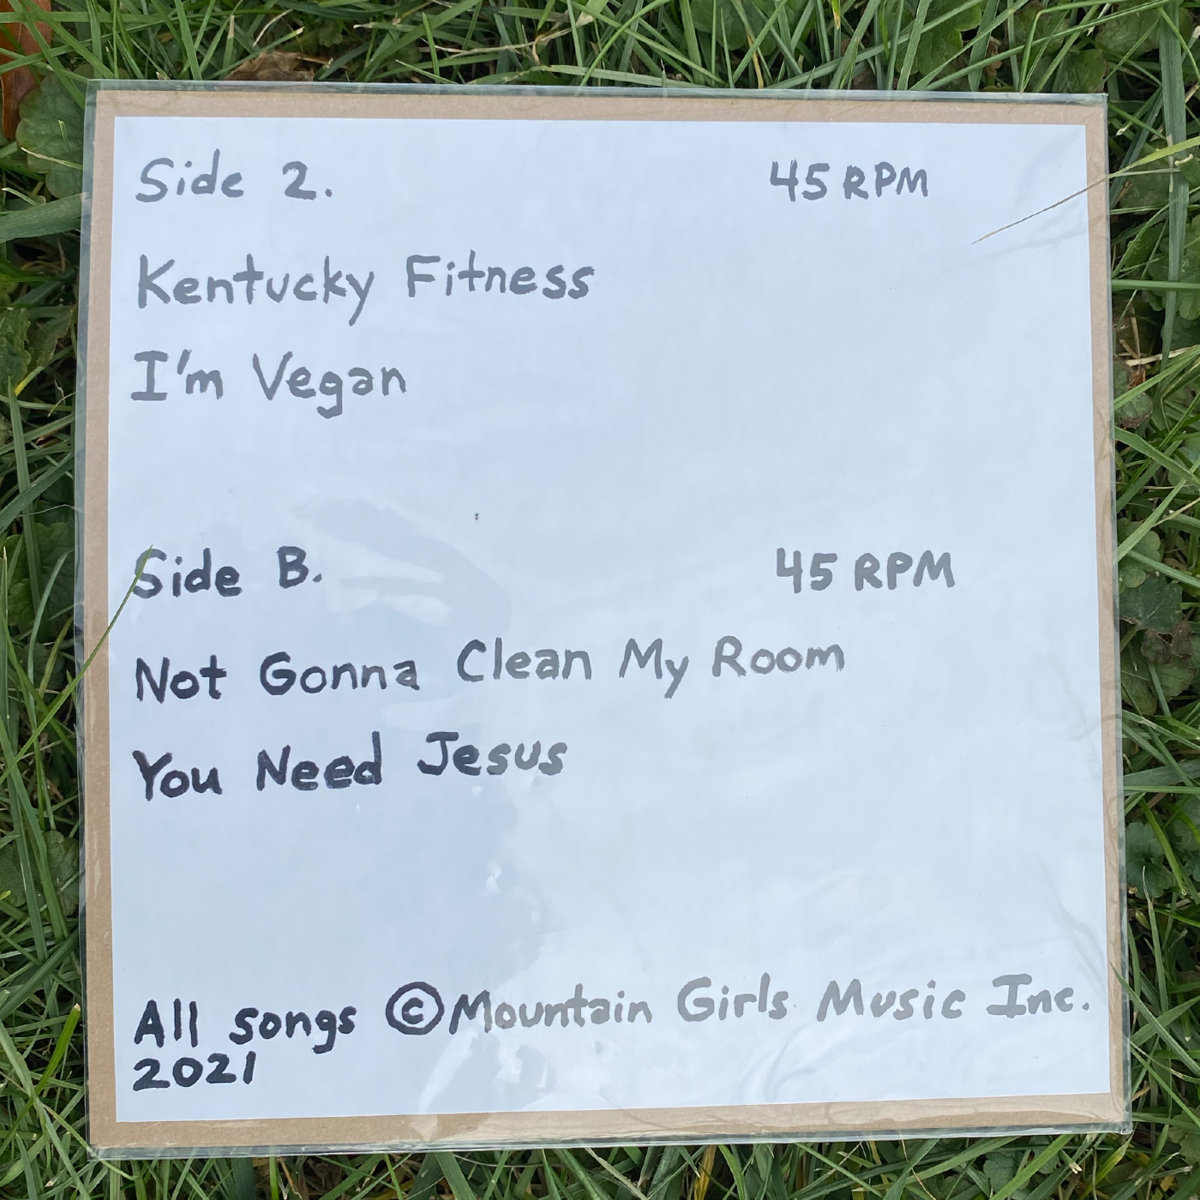 Side 2. 45 RPM
Kentucky Fitness
I'm Vegan
Side B. 45 RPM
Not Gonna Clean My Room
You Need Jesus
All songs ©Mountain Girls Music Inc.
2021